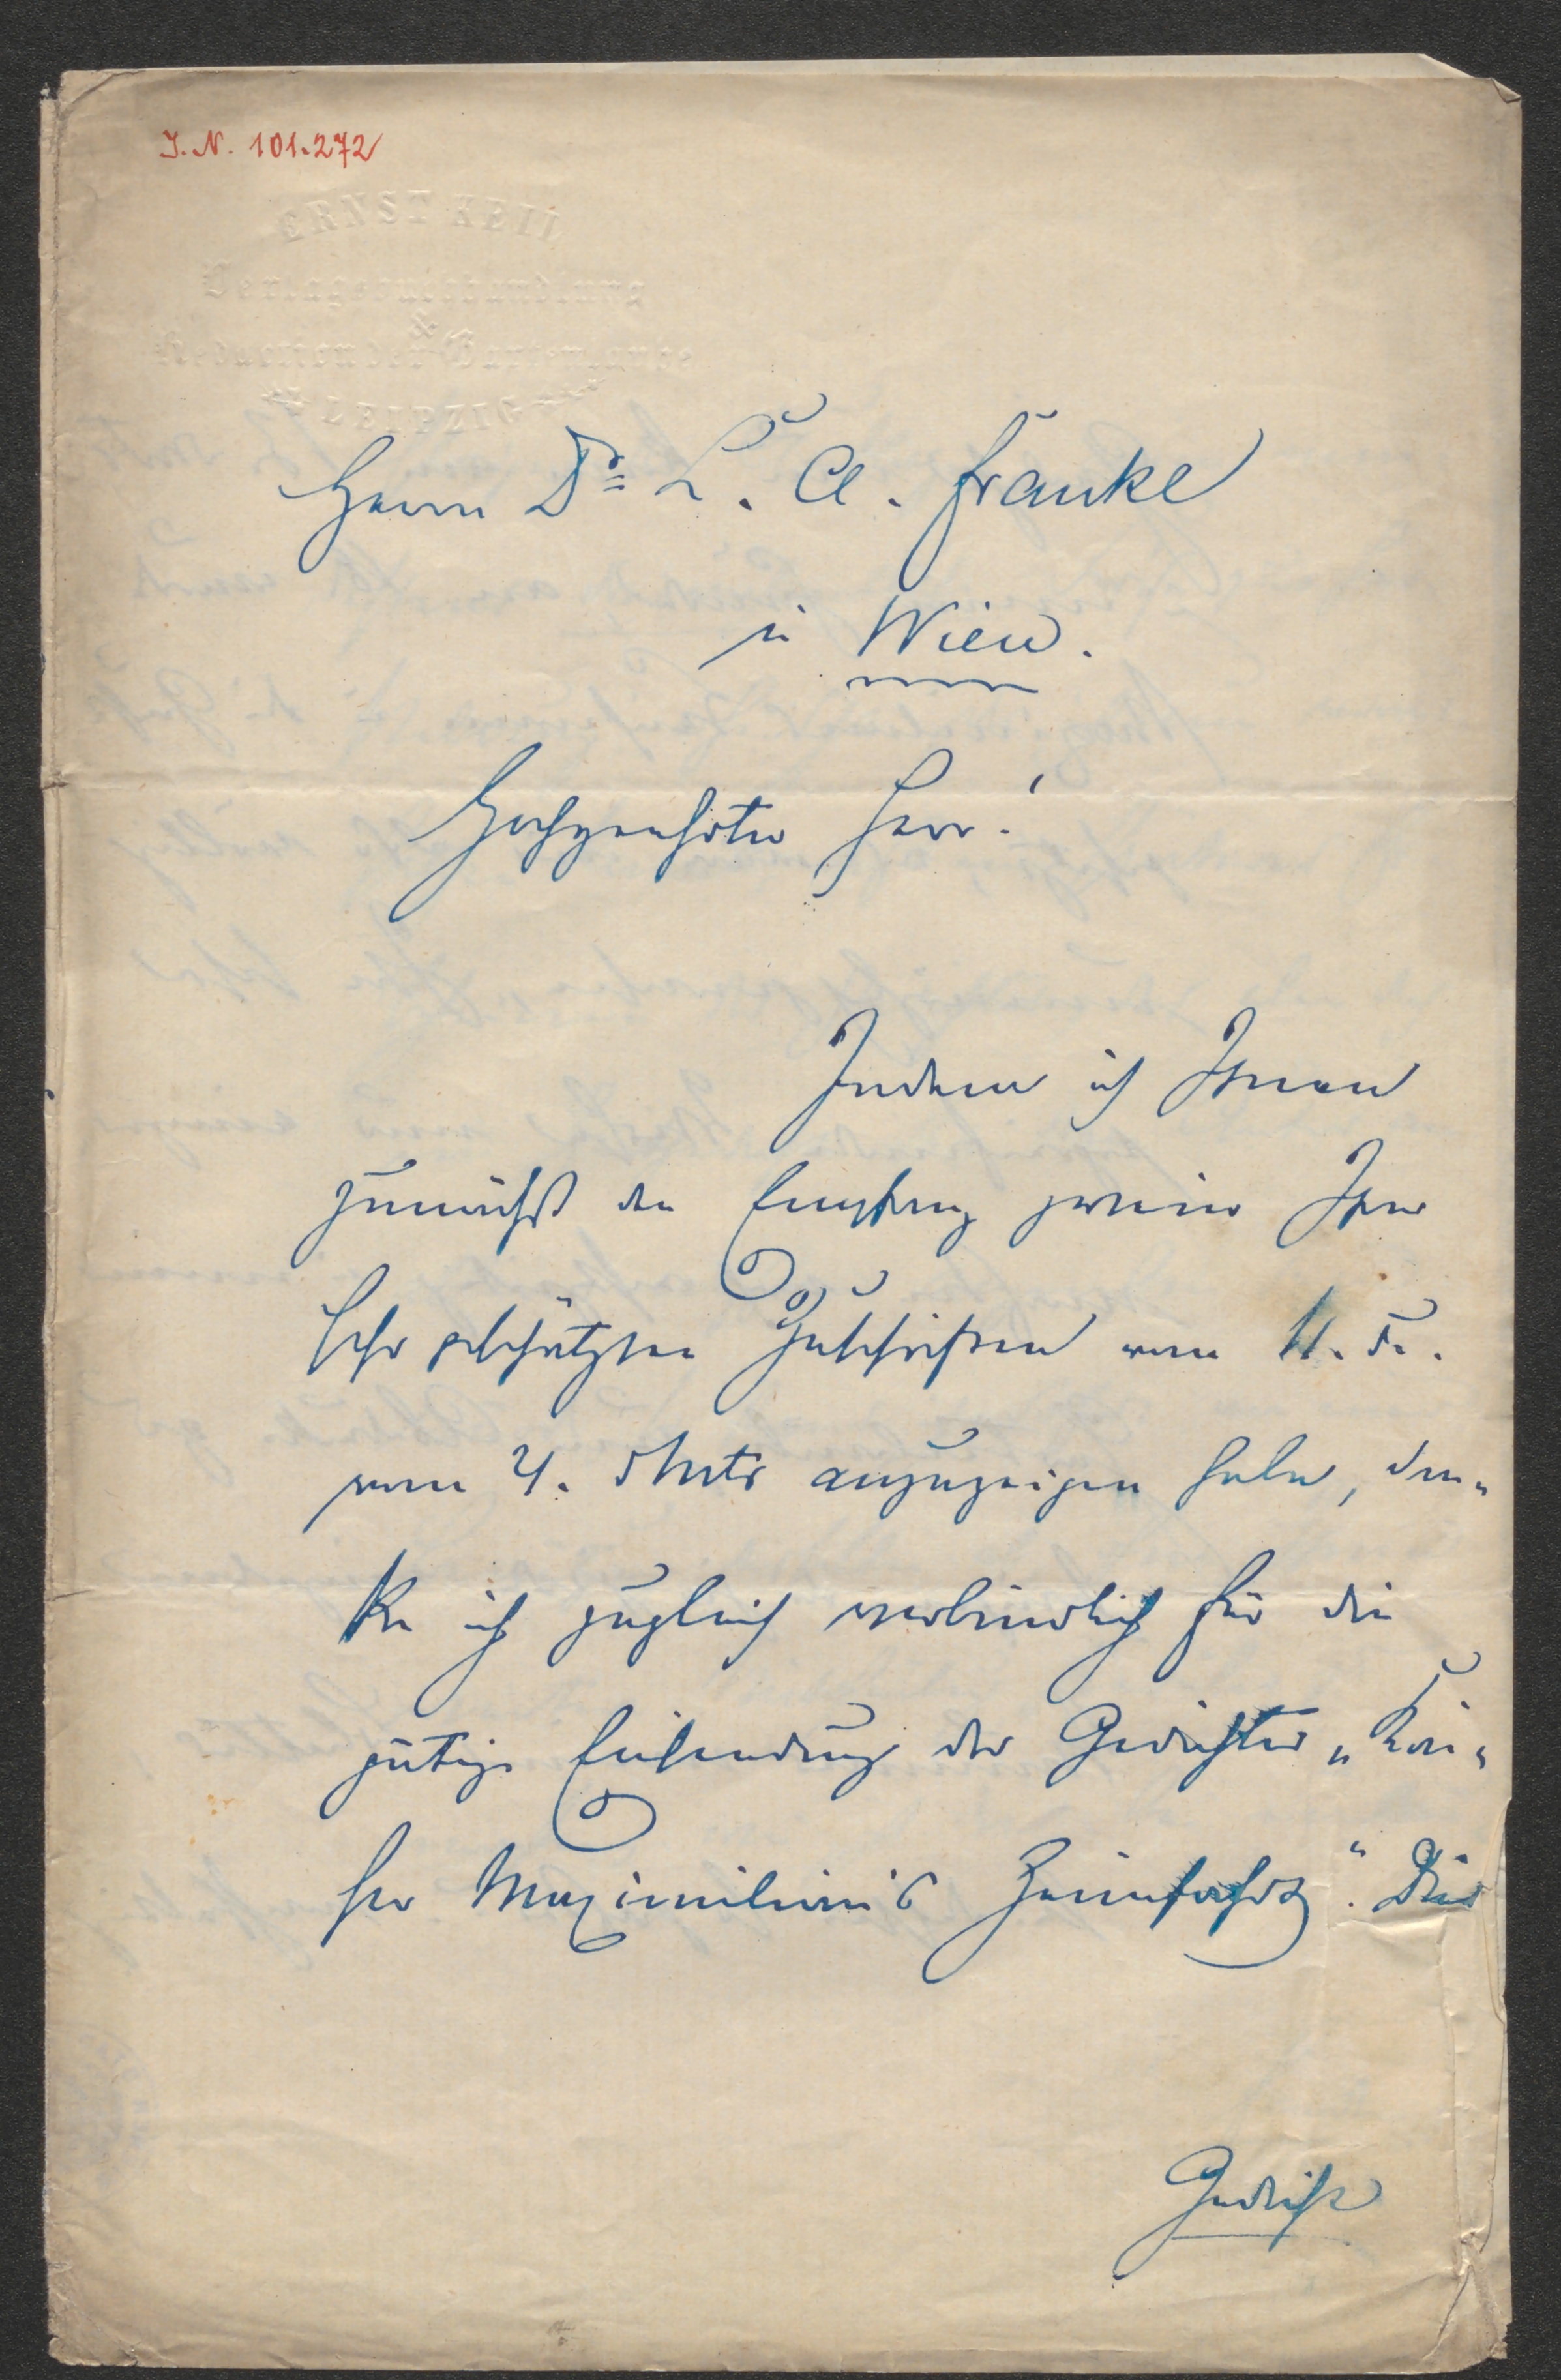 I. N. 101.272
ERNST KEIL
Verlagsbuchhandlung
&
Redaction der Gartenlaube
LEIPZIG
Herrn Dr. L. A. Franke
in Wien.
Hochgeehrter Herr!
Indem ich Ihnen
zunächst den Empfang zweier Ihrer
sehr geschätzten Zuschriften vom 11. u.
vom 21. d Mts anzuzeigen habe, dan„
ke ich zugleich verbindlich für die
gütige Einsendung des Gedichtes „Kai„
ser Maximilian's Heimfahrt". Dies
Gedicht